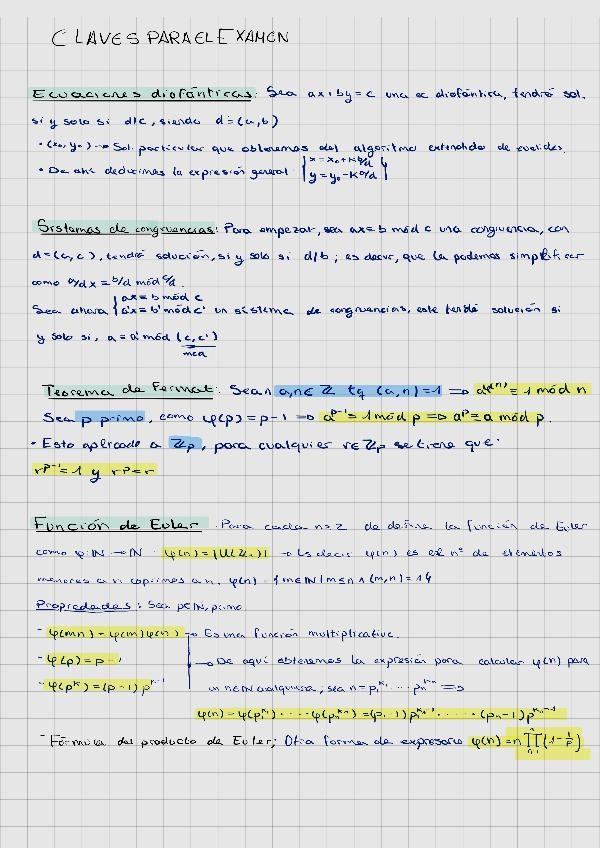 CLAVES PARA EL EXAMEN
Ecuaciones diofánticas: Sea ax+by=c una ec diofántica, tendrá sol.
si y solo si d/c, siendo d=(a,b)
• (x₀,y₀) → Sol. particular que obtenemos del algoritmo extendido de euclides.
• De ahí deducimos la expresión general { x=x₀+K b/d
y=y₀-K a/d }
Sistemas de congruencias: Para empezar, sea ax≡b mód c una congruencia, con
d=(a,c), tendrá solución, si y solo si d/b; es decir, que la podemos simplificar
como a/d x ≡ b/d mód c/d.
Sea ahora { ax≡b mód c
a'x≡b' mód c' un sistema de congruencias, este tendrá solución si
y solo si, a≡a' mód (c,c')
mcd
Teorema de Fermat: Sean a,n∈ℤ tq (a,n)=1 ⇒ a^φ(n)≡1 mód n
Sea p primo, como φ(p)=p-1 ⇒ a^p-1≡1 mód p ⇒ a^p≡a mód p.
• Esto aplicado a ℤp, para cualquier r∈ℤp se tiene que:
r^p-1=1 y r^p=r
Función de Euler. Para cada n≥2 de define la función de Euler
como φ:ℕ→ℕ φ(n)=|U(ℤn)| → Es decir φ(n) es el nº de elementos
menores a n coprimos a n. φ(n)={m∈ℕ/m≤n ∧ (m,n)=1}
Propiedades: Sea p∈ℕ, primo
- φ(mn)=φ(m)φ(n) → Es una función multiplicativa.
- φ(p)=p-1 → De aquí obtenemos la expresión para calcular φ(n) para
- φ(p^k)=(p-1)p^k-1 un n∈ℕ cualquiera, sea n=p₁^k₁...pn^kn ⇒
φ(n)=φ(p₁^k₁)·...·φ(pn^kn)=(p₁-1)p₁^k₁-1·...·(pn-1)p^kn-1
- Fórmula del producto de Euler; Otra forma de expresarlo φ(n)=n∏(1-1/p)